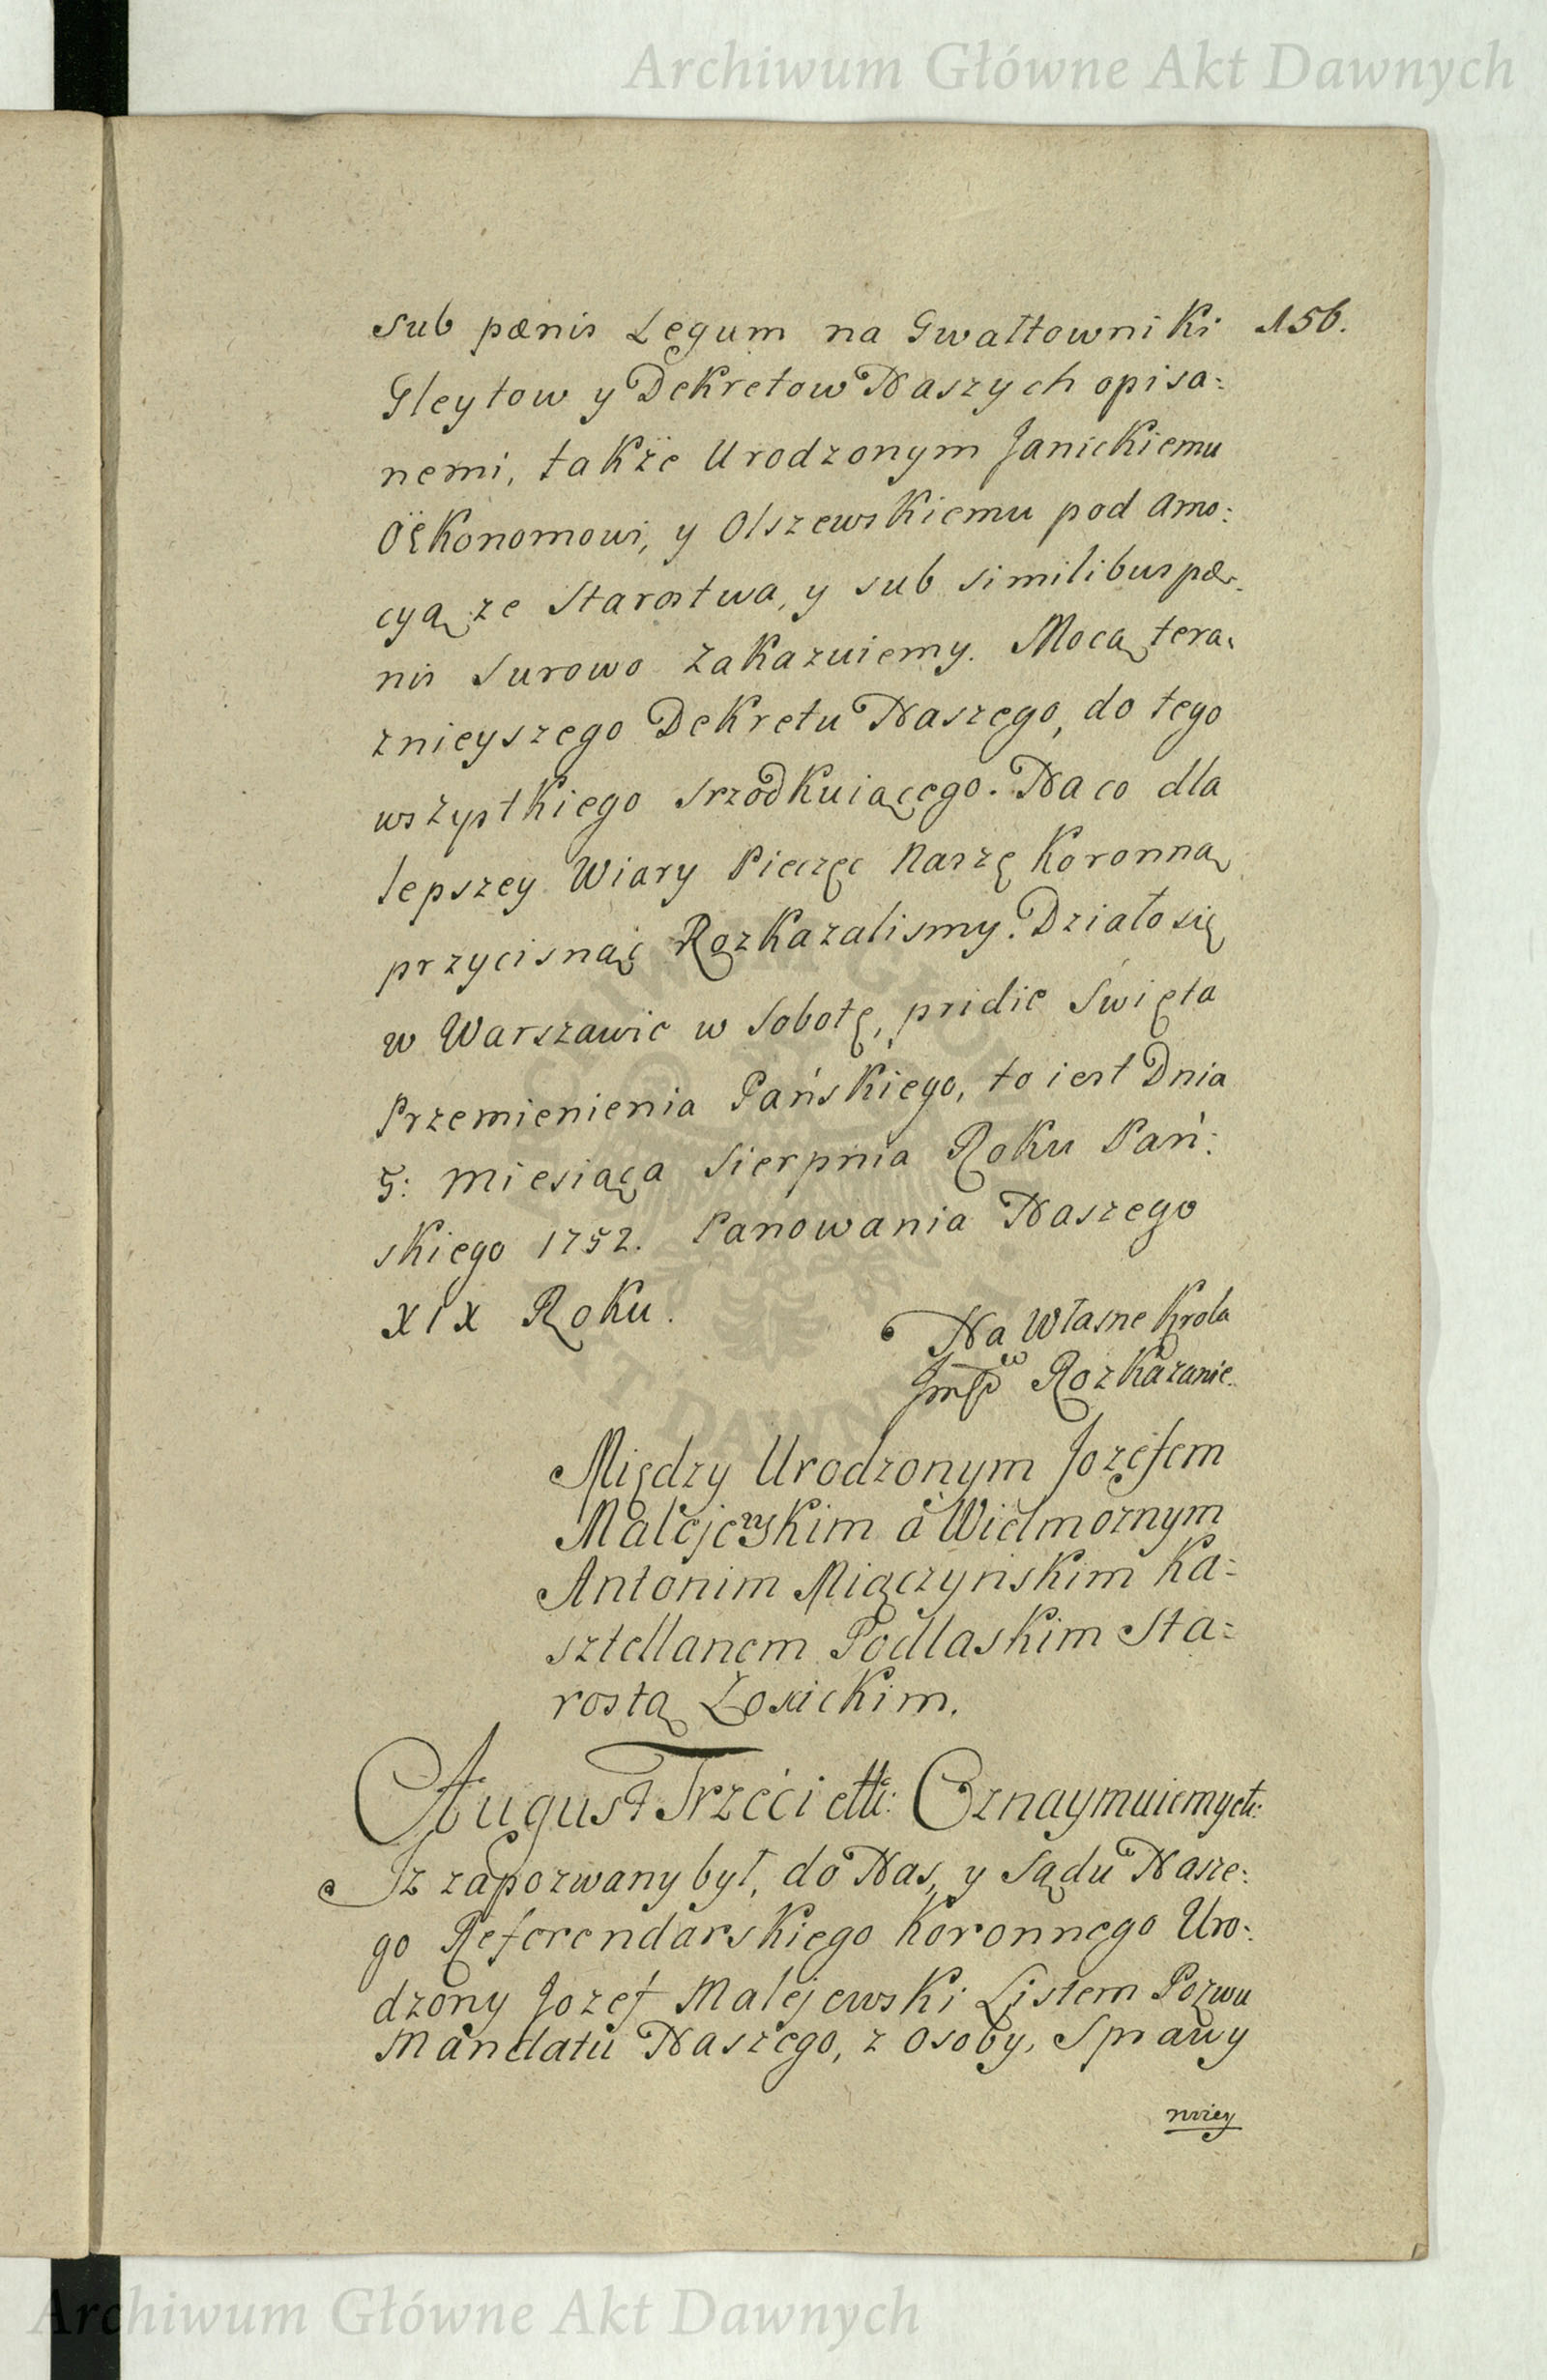 Archiwum Główne Akt Dawnych
156.
sub pœnis Legum na Gwałtowniki
Gleytow y Dekretow Naszych opisa:
nemi, także Urodzonym Janickiemu
Oëkonomowi, y Olszewskiemu pod amo:
cyą ze Starostwa, y sub similibus pœ-
nis surowo zakazuiemy. Mocą tera:
znieyszego Dekretu Naszego, do tego
wszystkiego srzodkuiącego. Na co dla
lepszey Wiary Pieczęc Naszę Koronną
przycisnąć Rozkazalismy. Działo się
w Warszawie w Sobotę, pridie Święta
Przemienienia Pańskiego, to iest Dnia
5: Miesiąca Sierpnia Roku Pań:
skiego 1752. Panowania Naszego
XIX Roku.
Na Własne Krola
Jmsci Rozkazanie.
Między Urodzonym Jozefem
Malejewskim a Wielmoznym
Antonim Miączyńskim Ka:
sztellanem Podlaskim Sta:
rostą Łosickim.
August Trzeci ettc: Oznaymuiemy etc:
Iz zapozwany był, do Nas, y Sądu Nasze:
go Referendarskiego Koronnego Uro:
dzony Jozef Malejewski Listem Pozwu
Mandatu Naszego, z osoby, Sprawy
niiey
Archiwum Główne Akt Dawnych